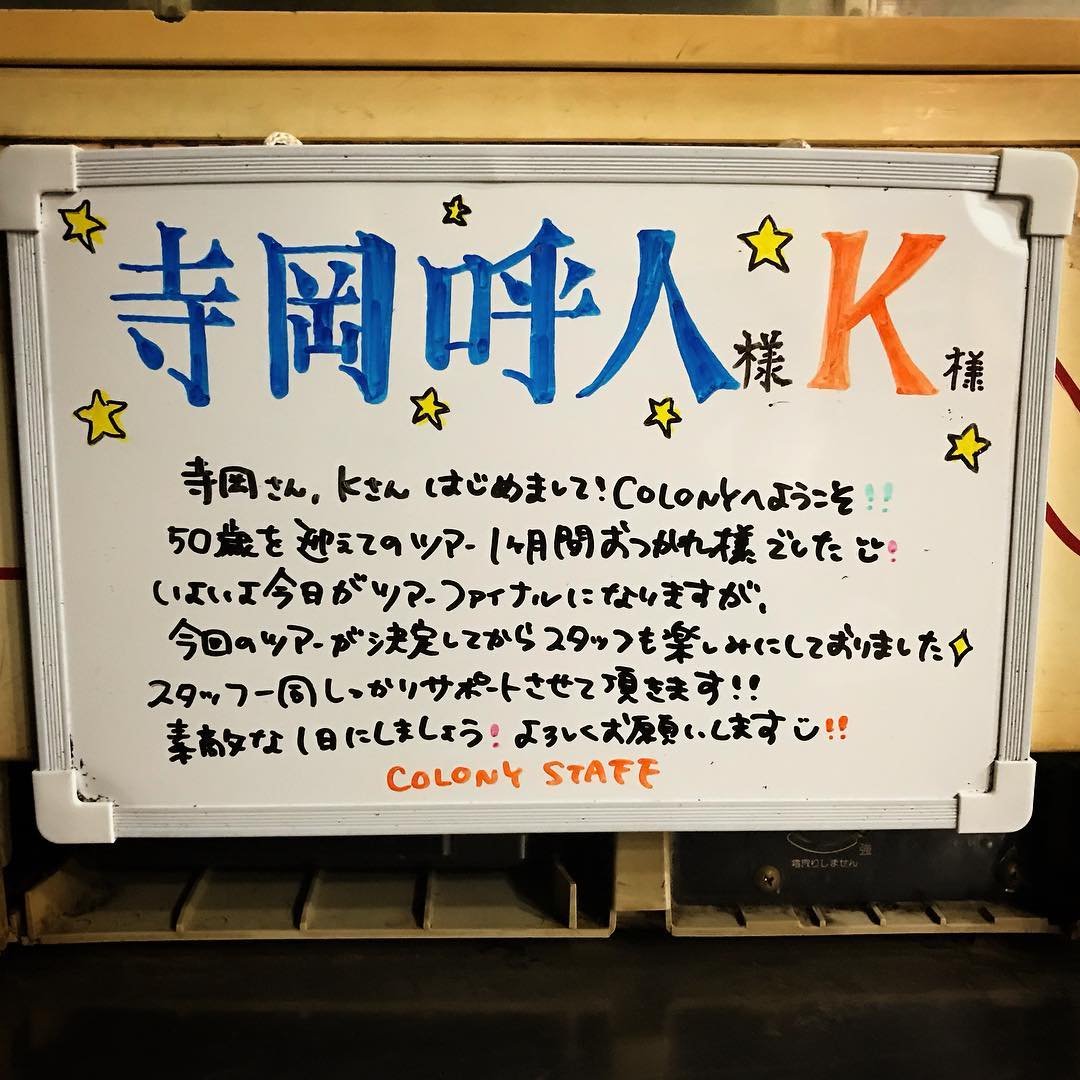 寺岡呼人様 K様
寺岡さん、Kさん はじめまして！COLONYへようこそ!!
50歳を迎えてのツアー 1ヶ月間おつかれ様でした!
いよいよ今日がツアーファイナルになりますが、
今回のツアーが決定してからスタッフも楽しみにしておりました
スタッフ一同しっかりサポートさせて頂きます!!
素敵な1日にしましょう! よろしくお願いします!!
COLONY STAFF
強